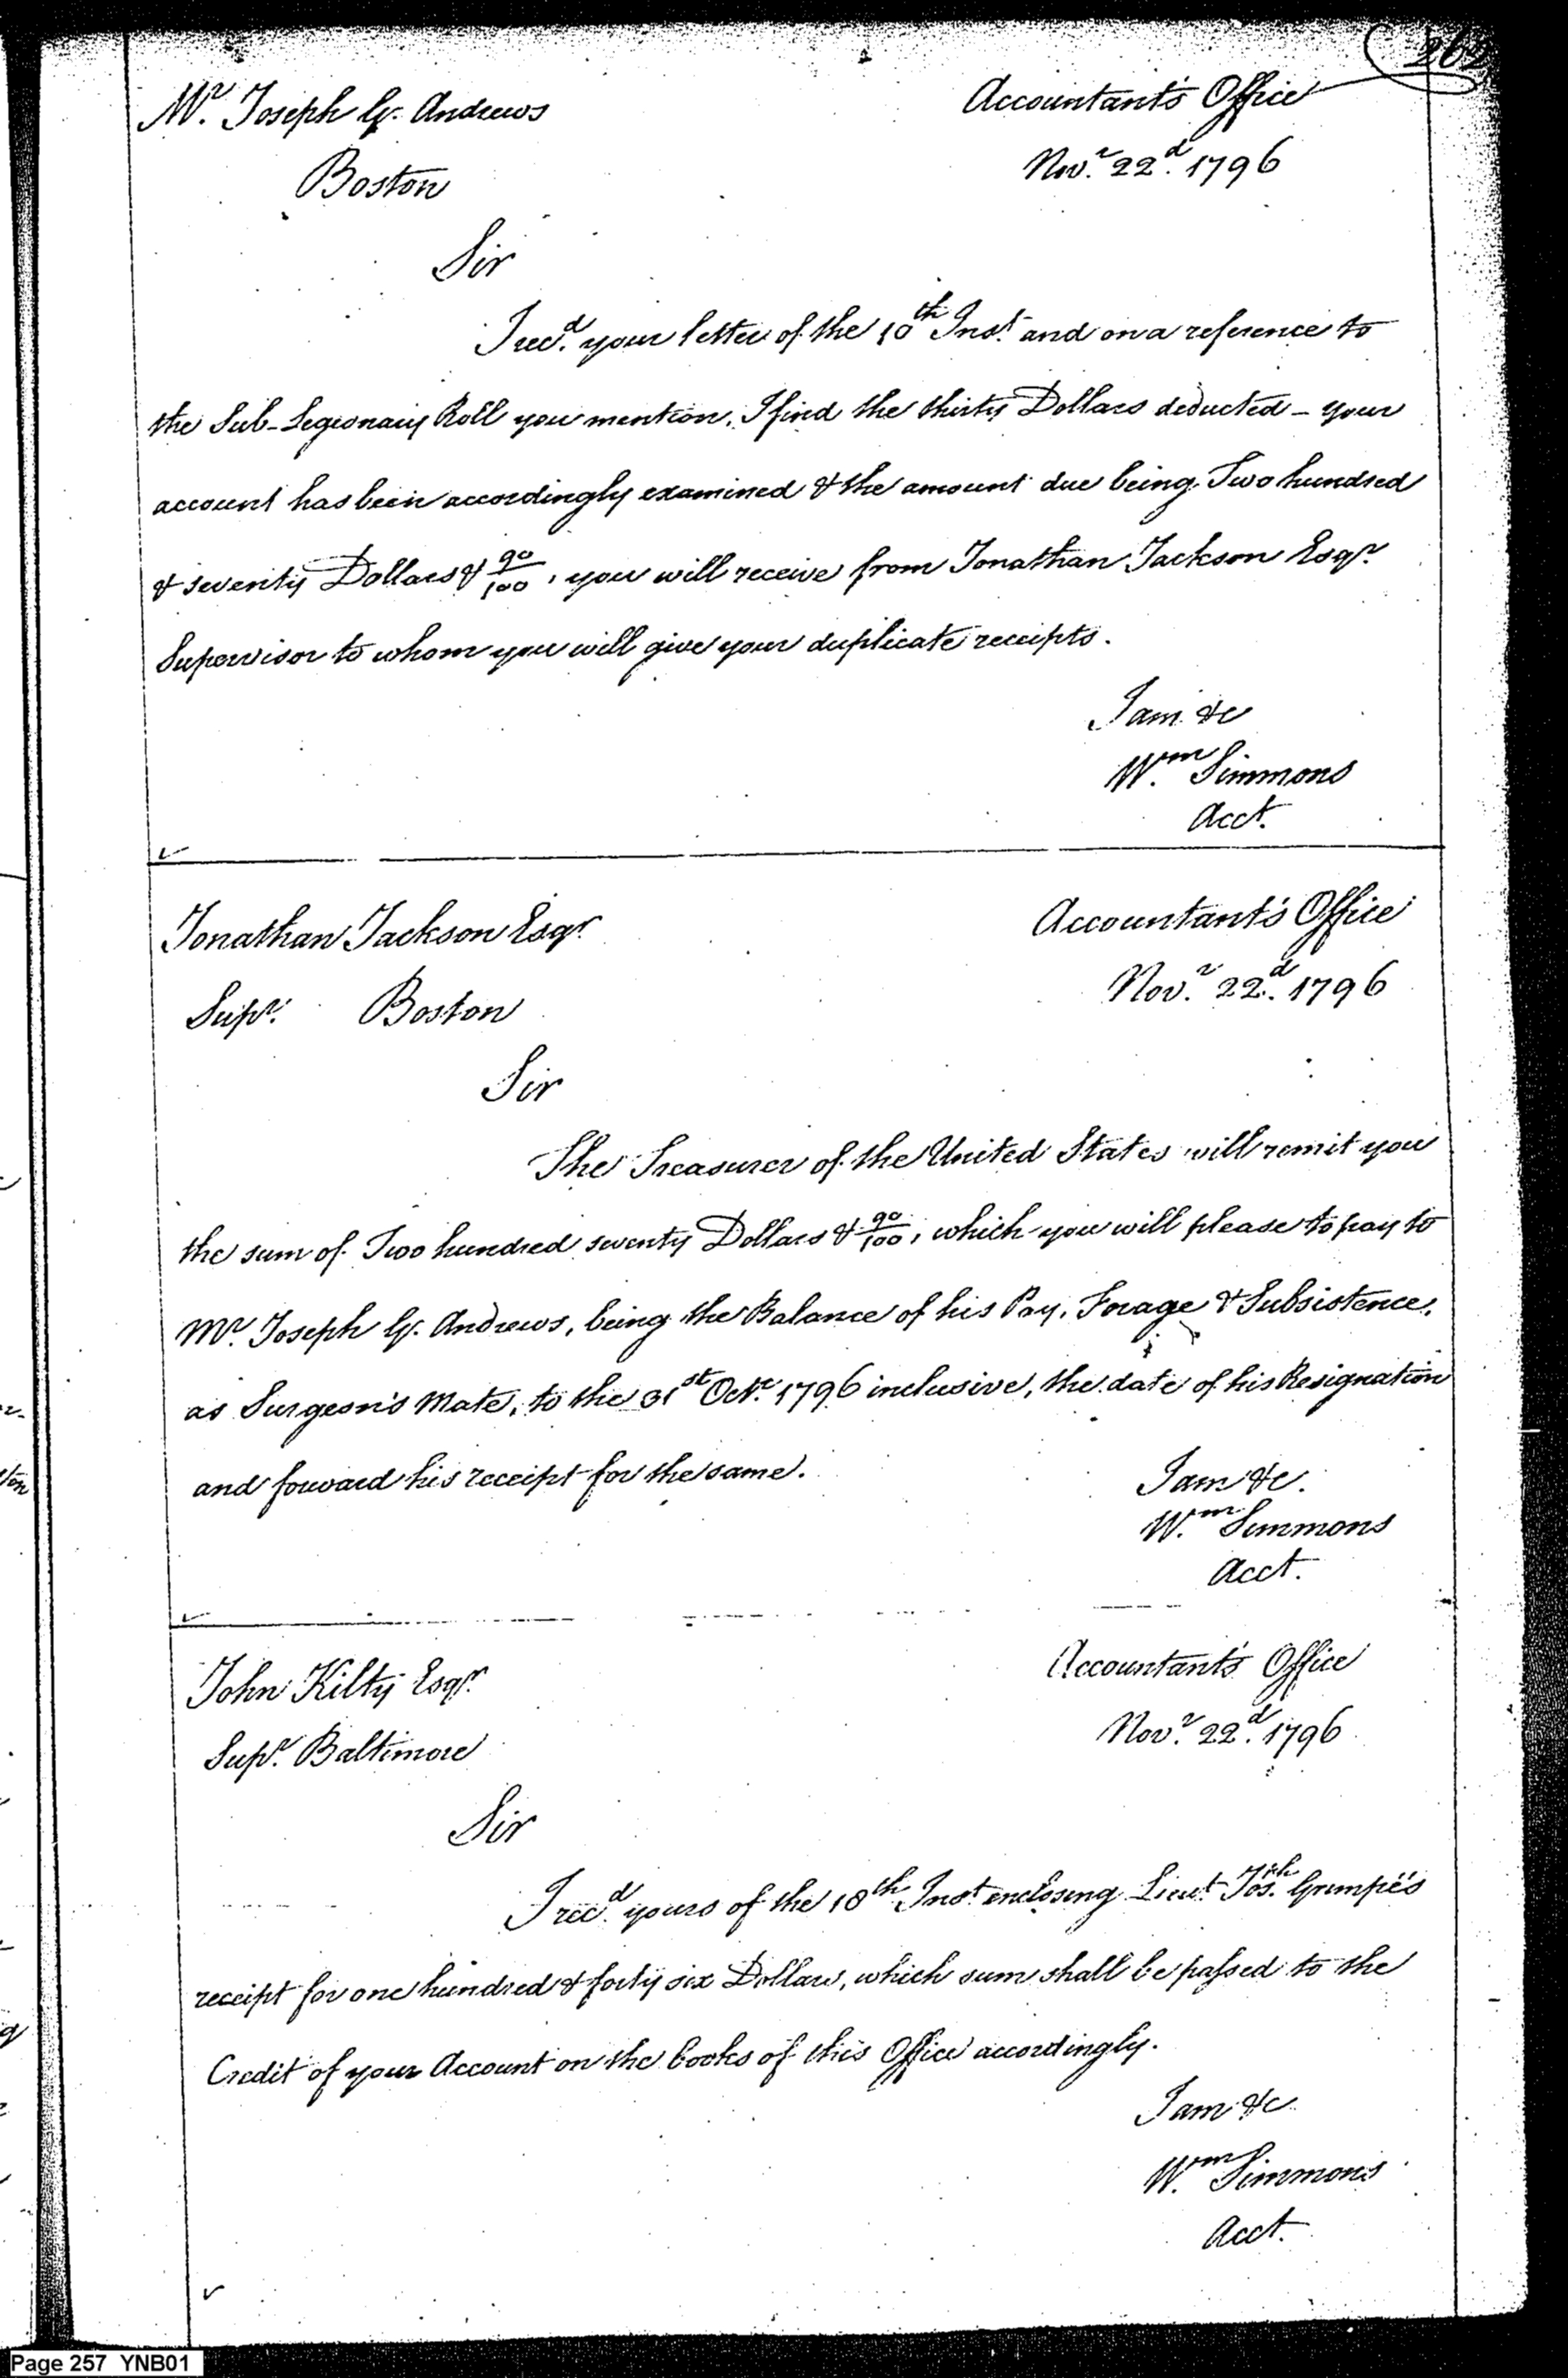 262
Mr. Joseph G. Andrews
Accountant's Office
Boston
Novr. 22d. 1796
Sir
I recd. your letter of the 10th Inst. and on a reference to
the Sub-Legionary Roll you mention, I find the thirty Dollars deducted – your
account has been accordingly examined & the amount due being Two hundred
& seventy Dollars & 90/100, you will receive from Jonathan Jackson Esqr.
Supervisor to whom you will give your duplicate receipts.
I am &c
Wm. Simmons
Acct.
Jonathan Jackson Esqr.
Accountant's Office
Supr. Boston
Novr. 22d. 1796
Sir
The Treasurer of the United States will remit you
the sum of Two hundred seventy Dollars & 90/100, which you will please to pay to
Mr. Joseph G. Andrews, being the Balance of his Pay, Forage & Subsistence,
as Surgeon's Mate, to the 31st Octr. 1796 inclusive, the date of his Resignation
and forward his receipt for the same.
I am &c.
Wm. Simmons
Acct.
John Kilty Esqr.
Accountant's Office
Supr. Baltimore
Novr. 22d. 1796
Sir
I recd. yours of the 18th Inst. enclosing Lieut. Josh.
receipt for one hundred & forty six Dollars, which sum shall be passed to the
Credit of your Account on the books of this Office accordingly.
I am &c
Wm. Simmons
Acct.
Page 257 YNB01